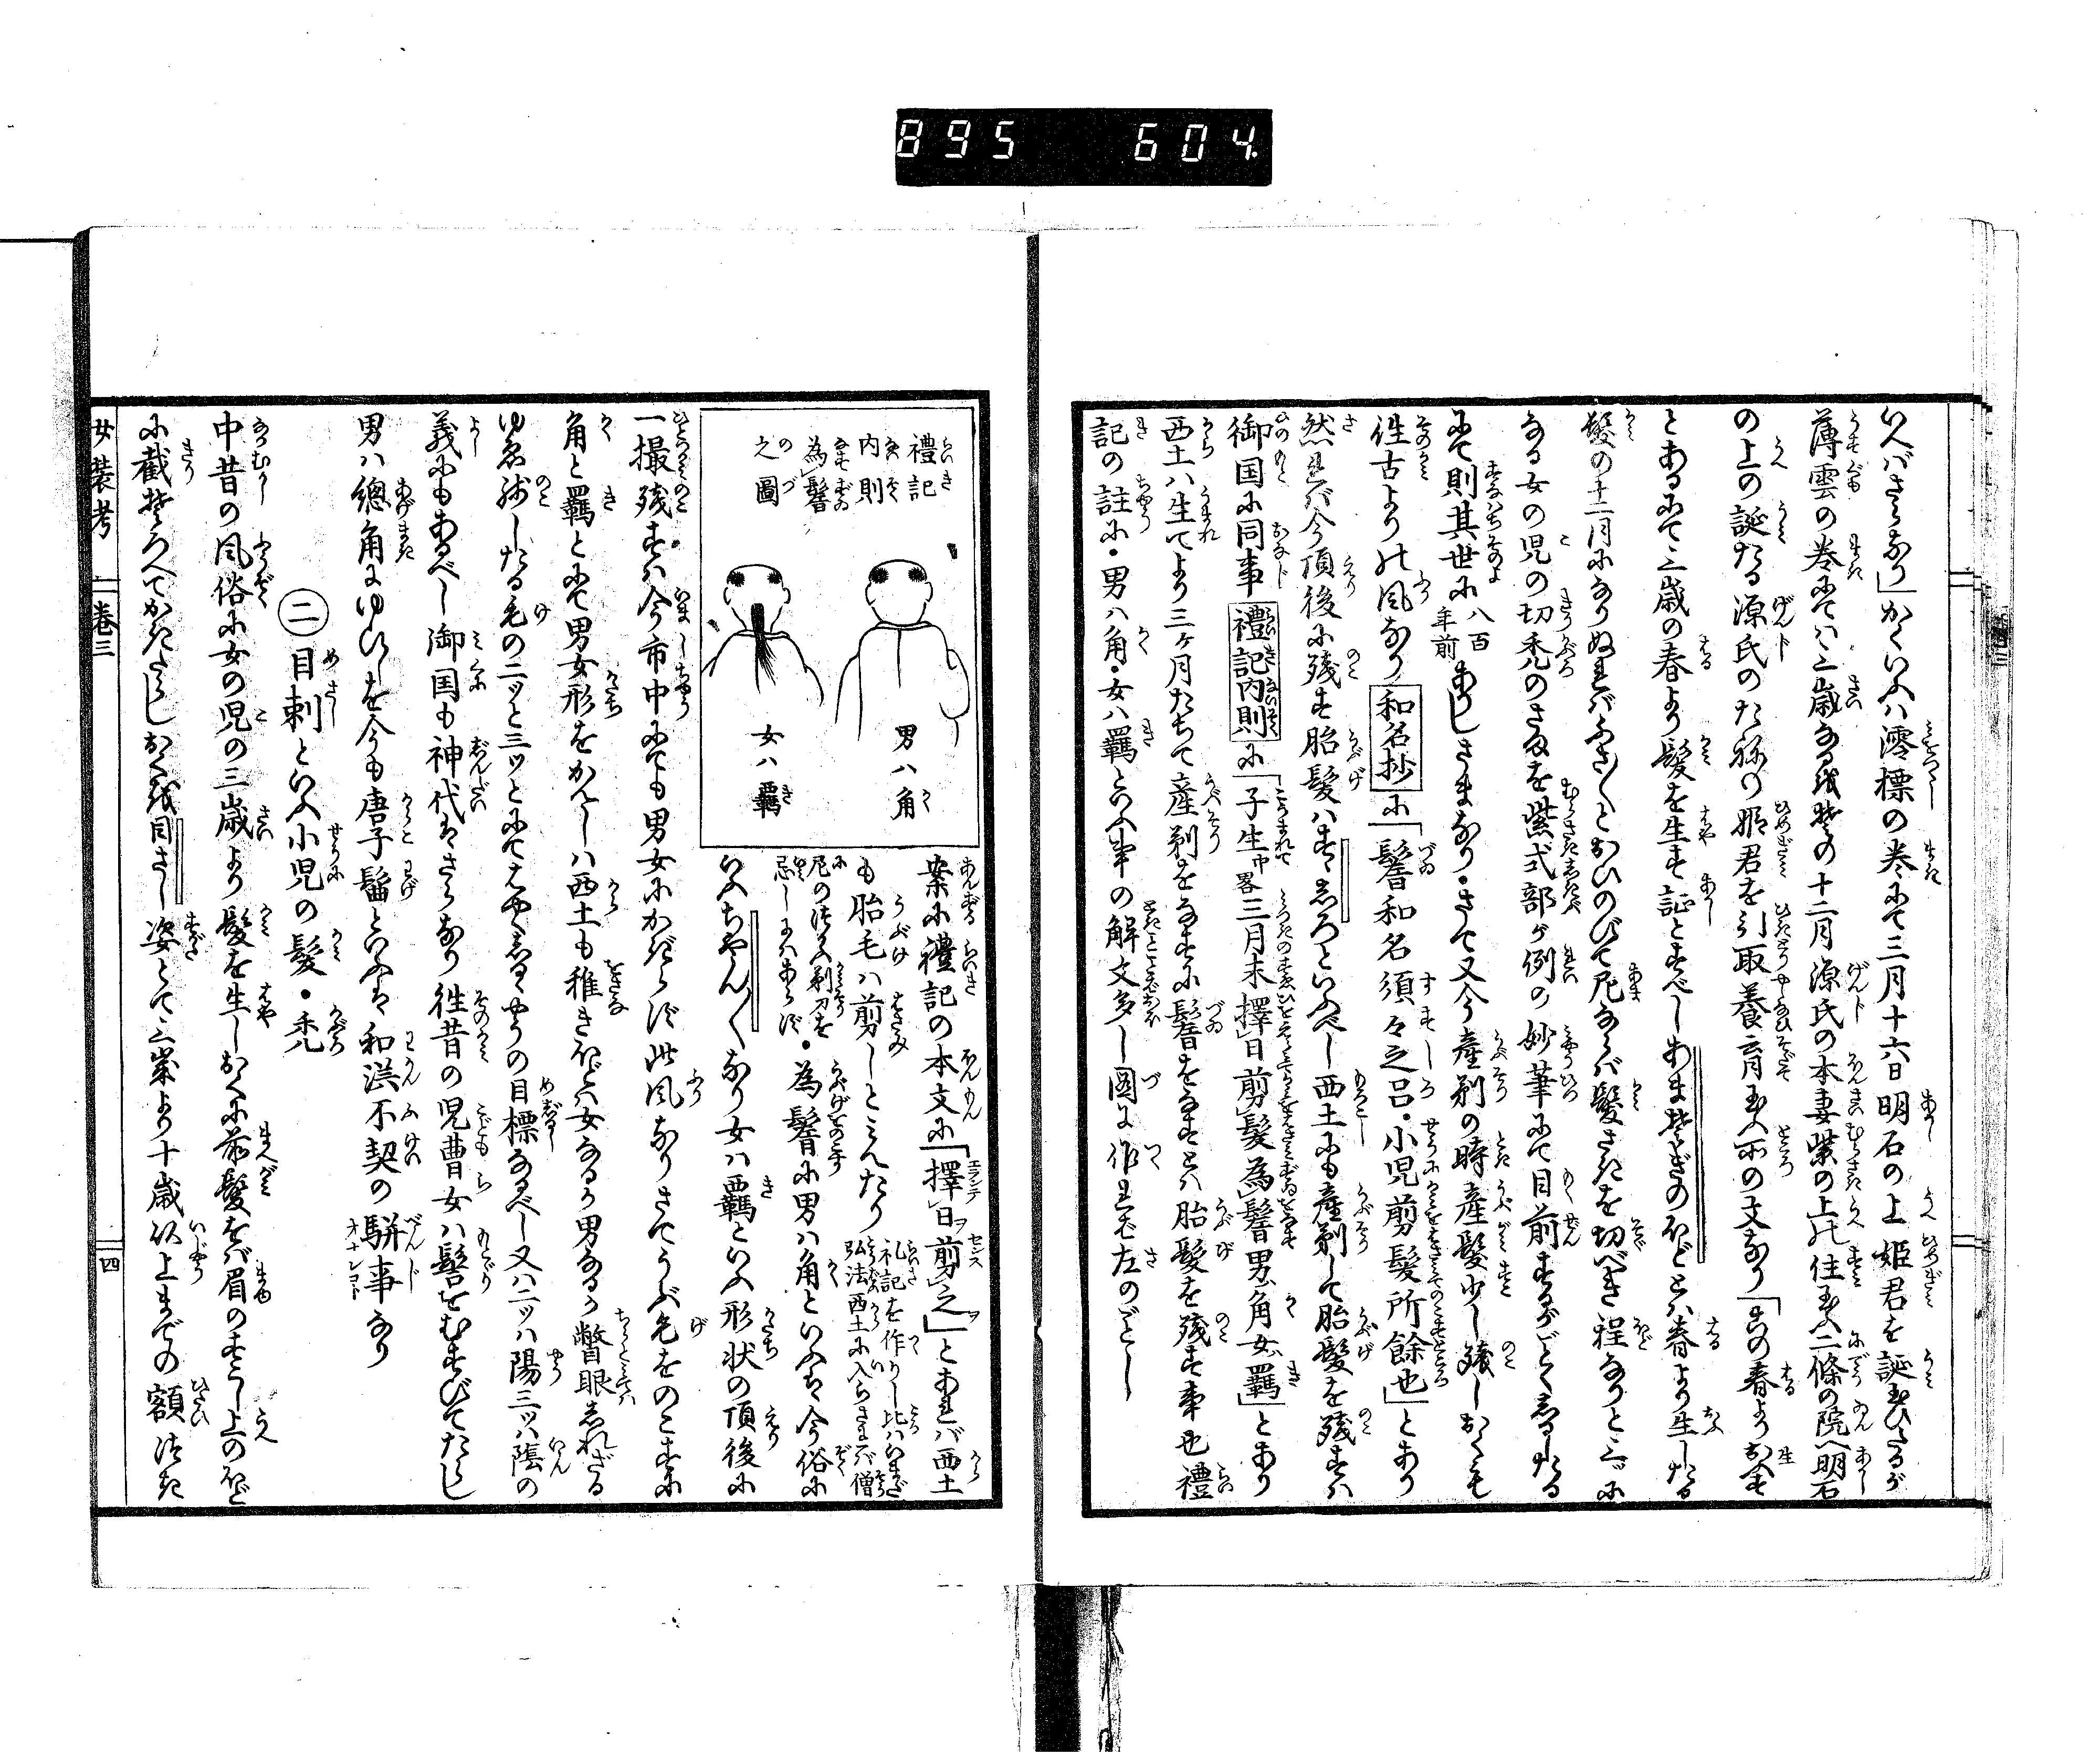 895 604
いへばさら也」かくいふは澪標の巻にて三月十六日明石の上姫君を誕給ひたるが
薄雲の巻にては三歳なる其の十二月源氏の本妻紫の上の住給ふ二條の院へ明石
の上の誕たる源氏のたねの姫君を引取養育給ふ所の文なり「この春よりおふす
とあるにて三歳の春より髪を生す証とすべしあまそぎのほどとは春より生したる
髪の十二月になりぬればふさ〳〵とおひのびて尼ならば髪さきを切べき程なりと三ッに
なる女の児の切禿のさまを紫式部が例の妙筆にて目前するがごとくしるしたる
にて則其世に八百年前ありしさまなり・さて又今産剃の時産髪少し残しおくも
往古よりの風なり和名抄に「髻和名須々之呂・小児剪髪所餘也」とあり
然れば今頂後に残す胎髪はすゞしろといふべし西土にも産剃して胎髪を残すは
御国に同事禮記内則に「子生中畧三月末擇日剪髪為鬌男角女羈」とあり
西土は生てより三ヶ月たちて産剃をなすに鬌をなすとは胎髪を残す事也禮
記の註に・男ハ角・女ハ羈といふ事の解文多し図に作れば左のごとし
禮記
内則
為鬌
之圖
男ハ角
女ハ羈
案に禮記の本文に「擇日剪之」とあれば西土
も胎毛は剪しとみえたり
為鬌に男は角といふは今俗に
いふちやん〳〵なり女は羈といふ形状の頂後に
一撮残すは今市中にても男女にかぎらず此風なりさてうぶ毛をのこすに
角と羈とにて男女形をかえしは西土も稚きほどは女なるか男なるか瞥眼しれざる
ゆゑ残したる毛の二ッと三ッとにてはやくしるゝやうの目標なるべし又は二ッハ陽三ッハ陰の
義にもあるべし御国も神代はさらなり往昔の児曹女は髻をむすびてたらし
男は總角にゆひしを今も唐子髷といふは和漢不契の駢事なり
二 目刺といふ小児の髪・禿
中昔の風俗に女の児の三歳より髪を生しおくに前髪をば眉のすこし上のほど
に截そろへてかきたらしおくを目さし姿とて三歳より十歳以上までの額つき
女装考 巻三 四